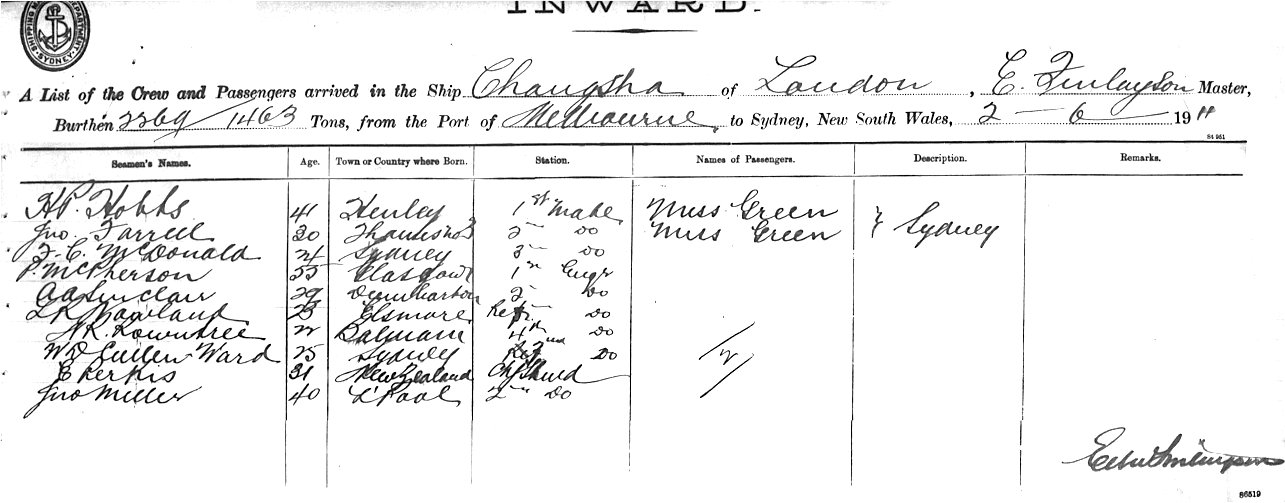 INWARD.
SHIPPING DEPARTMENT SYDNEY
A List of the Crew and Passengers arrived in the Ship Changsha of London, E. Finlayson Master,
Burthen 2269/1463 Tons, from the Port of Melbourne, to Sydney, New South Wales, 2-6 1911
84 951
Seamen's Names. Age. Town or Country where Born. Station. Names of Passengers. Description. Remarks.
H.P. Hobbs 41 Henley 1st Mate Miss Green
Jno. Farrell 30 2 Do Miss Green } Sydney
F. C. McDonald 24 Sydney 3 Do
P. McPherson 33 Glasgow 1st Engr
A A Sinclair 29 Dumbarton 2 Do
L R Rowland 23 Elsmore Do
N R. Rowntree 22 Balmain 4th Do
W D Cullen Ward 25 Sydney 2nd Do /2/
E Kerkis 31 New Zealand Chf Stwd
Jno Miller 40 L'Pool 2 Do
86519